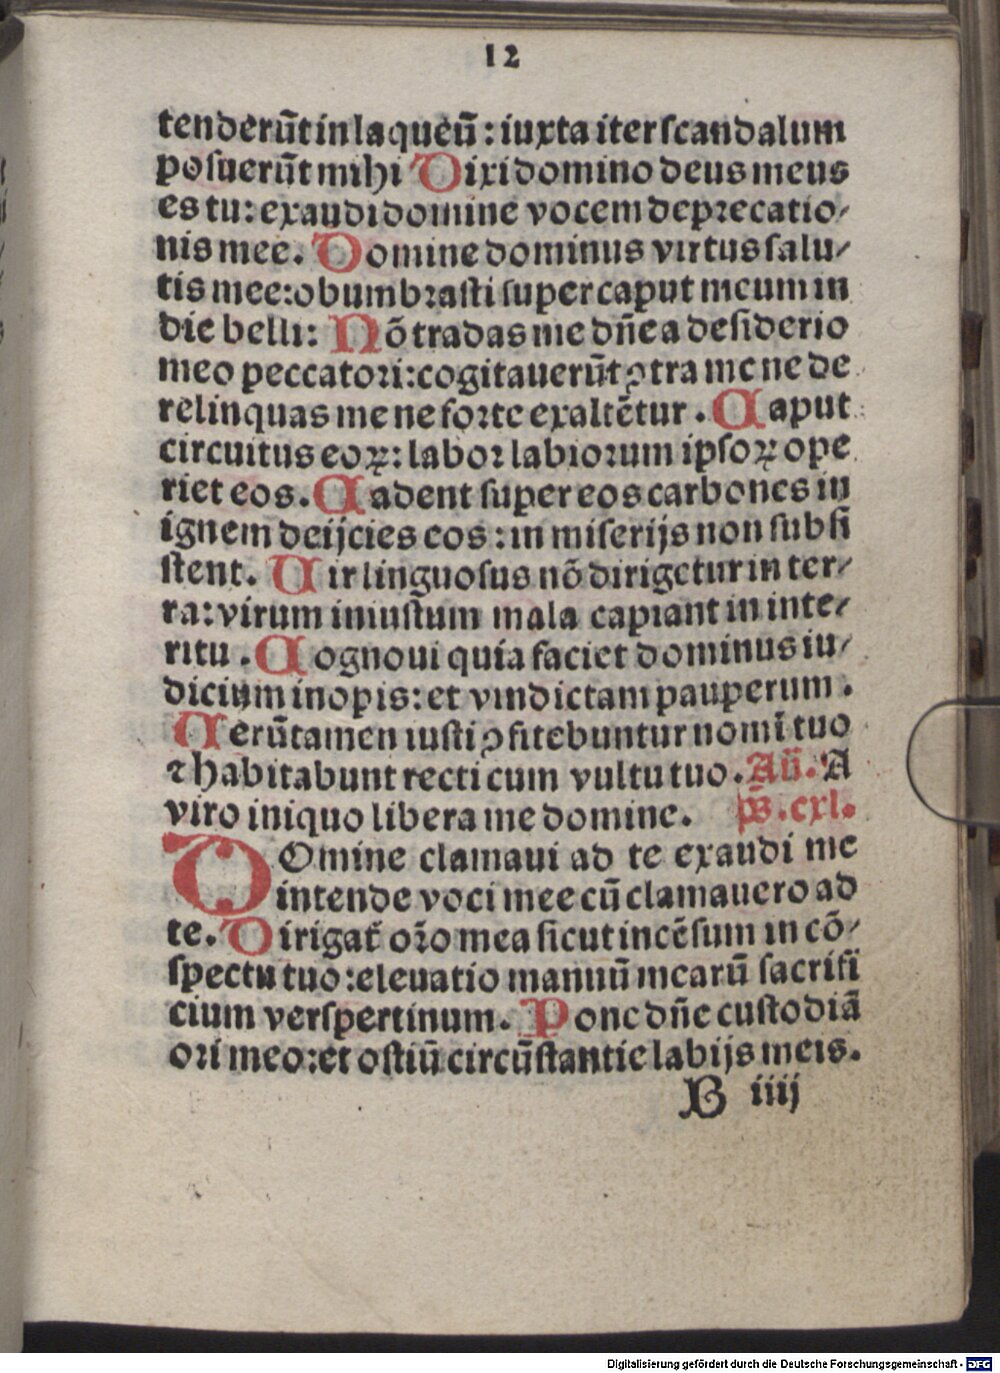 12
tenderūt in laqueū : iuxta iter scandalum
posuerūt mihi Dixi domino deus meus
es tu: exaudi domine vocem deprecatio/
nis mee. Domine dominus virtus salu/
tis mee: obumbrasti super caput meum in
die belli: Nō tradas me dn̄e a desiderio
meo peccatori: cogitauerūt ꝯtra me ne de
relinquas me ne forte exaltētur. Caput
circuitus eoꝝ: labor labiorum ipsoꝝ ope
riet eos. Cadent super eos carbones in
ignem deijcies eos : in miserijs non subsi
stent. Uir linguosus nō dirigetur in ter/
ra: virum iniustum mala capiant in inte/
ritu. Cognoui quia faciet dominus iu/
dicium inopis: et vindictam pauperum.
Uerūtamen iusti ꝯfitebuntur nomī tuo
⁊ habitabunt recti cum vultu tuo. Añ. A
viro iniquo libera me domine. ps̄. cxl.
DOmine clamaui ad te exaudi me
intende voci mee cū clamauero ad
te. Dirigat᷑ or̄o mea sicut incēsum in cō/
spectu tuo: eleuatio manuū mearū sacrifi
cium verspertinum. Pone dn̄e custodiā
ori meo: et ostiū circūstantie labijs meis.
B iiij
Digitalisierung gefördert durch die Deutsche Forschungsgemeinschaft - DFG